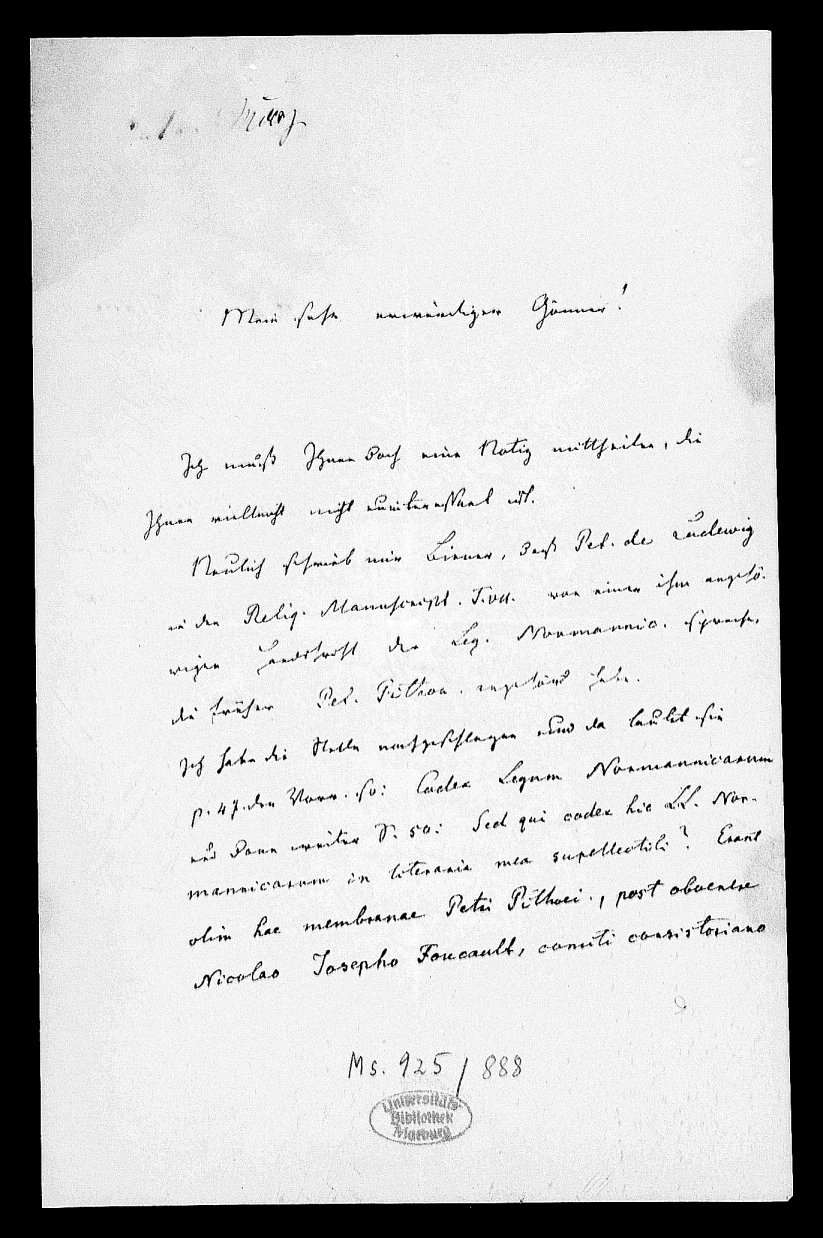 März
Mein sehr verwürdiger Gönner!
Ich muß Ihnen doch eine Notiz mittheilen, die
Ihnen vielleicht nicht uninteressant ist.
Neulich schrieb mir Biener, daß Pet. de Ludewig
in den Reliq. Manuscript. T. VII. von einer ihm angehö-
rigen Handschrift der Leg. Normannic. spreche,
die früher Pet. Pithou. angehört habe.
Ich habe die Stelle nachgeschlagen und da lautet sie
p. 47. der Vorr. so: Codex Legum Normannicarum
und dann weiter S. 50: Sed qui codex hic LL. Nor-
mannicarum in literaria mea supellectili? Erant
olim hae membranae Petri Pithoei., post obvenere
Nicolao Josepho Foucault, comiti consistoriano
Ms. 925/888
Universitäts-
Bibliothek
Marburg